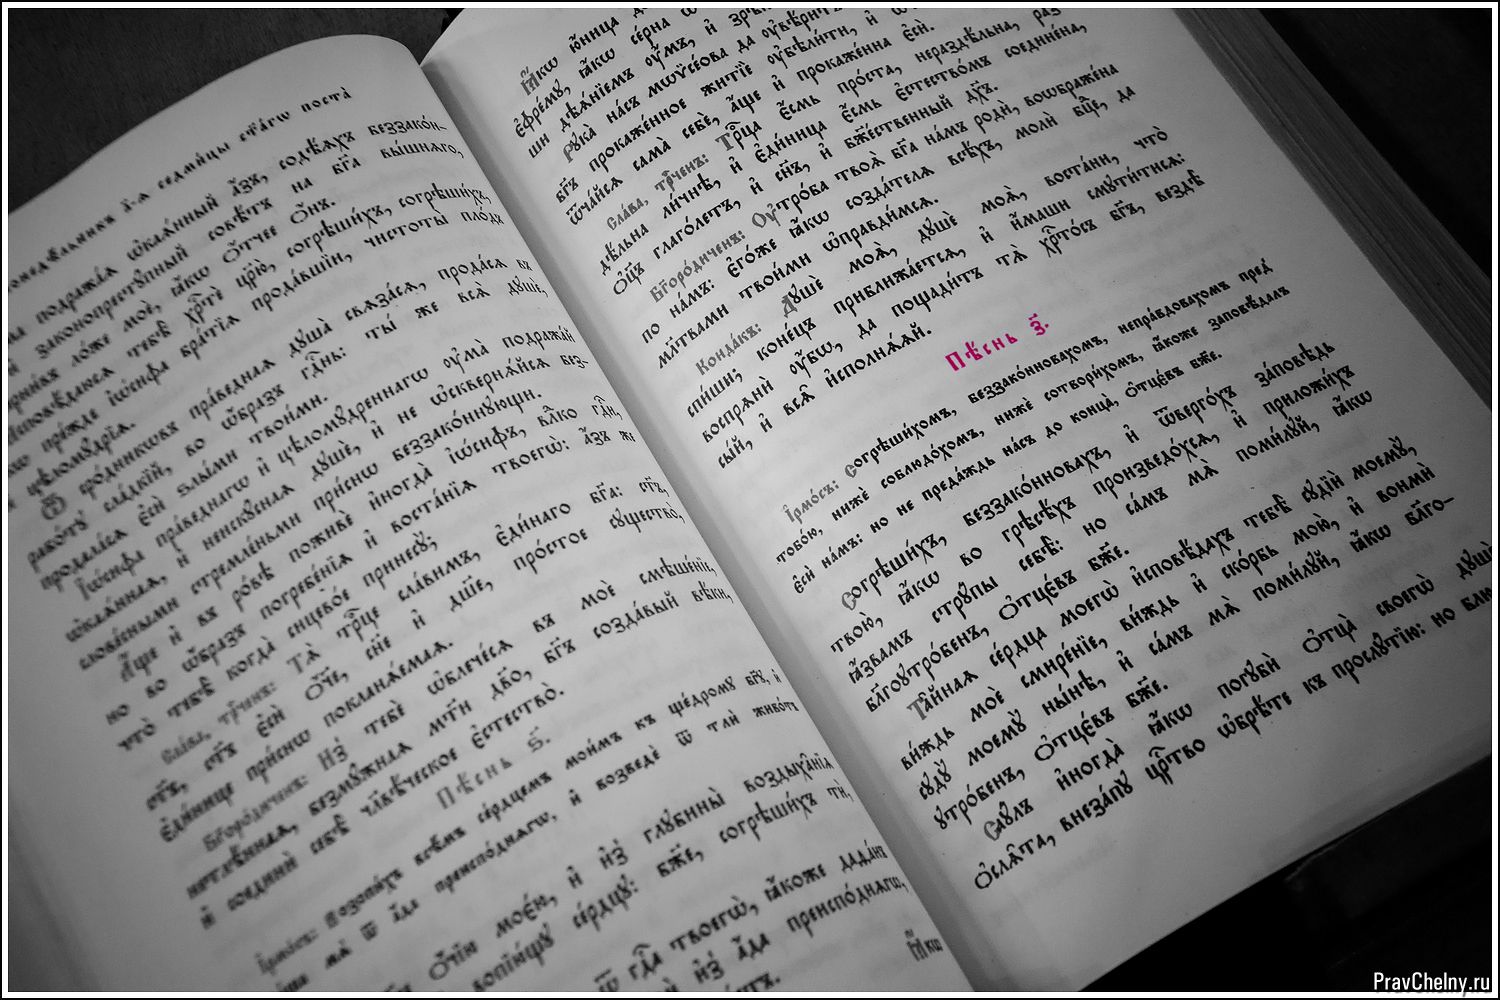 Понедѣ́льникъ а҃-ѧ седми́цы ст҃а́гѡ поста̀
подража́ѧ ѡ҆каѧ́нный а҆́зъ, содѣ́ѧхъ беззако́н-
законопресту́пный совѣ́тъ на бг҃а вы́шнѧго,
ло́же моѐ, ꙗ҆́кѡ ѻ҆́тчее ѻ҆́нъ.
И҆сповѣ́даюсѧ тебѣ̀ хрⷭ҇тѐ цр҃ю̀, согрѣши́хъ, согрѣши́хъ,
пре́жде і҆ѡ́сифа бра́тїѧ прода́вшїи, чистоты̀ пло́дъ
цѣлому́дрїѧ.
Ѿ сро́дникѡвъ пра́веднаѧ дꙋша̀ свѧза́сѧ, прода́сѧ въ
рабо́тꙋ сла́дкїй, во ѡ҆́бразъ гдⷭ҇нь: ты́ же всѧ̀ дꙋшѐ,
продала́сѧ є҆сѝ ѕлы́ми твои́ми.
І҆ѡ́сифа пра́веднагѡ и҆ цѣломꙋ́дреннагѡ ᲂу҆ма̀ подража́й
ѡ҆каѧ́ннаѧ, и҆ неискꙋ́снаѧ дꙋшѐ, и҆ не ѡ҆сквернѧ́йсѧ без-
слове́сными стремле́ньми при́снѡ беззако́ннꙋющи.
А҆́ще и҆ въ ро́вѣ поживѐ и҆ногда̀ і҆ѡ́сифъ, влⷣко гдⷭ҇и,
но во ѡ҆́бразъ погребе́нїѧ и҆ воста́нїѧ твоегѡ̀: а҆́зъ же
что̀ тебѣ̀ когда̀ сицево́е принесꙋ̀;
Сла́ва, трⷪ҇ченъ: Тѧ̀ трⷪ҇це сла́вимъ, є҆ди́наго бг҃а: ст҃ъ,
ст҃ъ, ст҃ъ є҆сѝ ѻ҆́ч҃е, сн҃е и҆ дш҃е, про́стое сꙋщество̀,
є҆ди́нице при́снѡ покланѧ́емаѧ.
Бг҃оро́диченъ: И҆з̾ тебѐ ѡ҆блече́сѧ въ моѐ смѣше́нїе,
нетлѣ́ннаѧ, безмꙋ́жнаѧ мт҃и дв҃о, бг҃ъ созда́вый вѣ́ки,
и҆ соединѝ себѣ̀ чл҃вѣ́ческое є҆стество̀.
Пѣ́снь ѕ҃.
І҆рмо́съ: Возопи́хъ всѣ́мъ се́рдцемъ мои́мъ къ ще́дромꙋ бг҃ꙋ, и҆
мѧ̀ ѿ а҆́да преиспо́днѧгѡ, и҆ возведѐ ѿ тлѝ живо́тъ
ѻ҆́чїю мое́ю, и҆ и҆з̾ глꙋбины̀ воздыха̑нїѧ
вопїю́щꙋ се́рдцꙋ: бж҃е, согрѣши́хъ ти̑,
ѿ гдⷭ҇а твоегѡ̀, ꙗ҆́коже даѳа́нъ
и҆з̾ а҆́да преиспо́днѧгѡ,
Ꙗ҆́кѡ
Ꙗ҆́кѡ ю҆́ница
є҆фре́мꙋ, ꙗ҆́кѡ се́рна
ши дѣѧ́нїемъ ᲂу҆́мъ, и҆ зрѣ́
Рꙋка̀ на́съ мѡѷсе́ова да ᲂу҆вѣ́ритъ
бг҃ъ прокаже́нное житїѐ ᲂу҆бѣли́ти, и҆
ѿча́йсѧ сама̀ себѐ, а҆́ще и҆ прокаже́нна є҆сѝ.
Сла́ва, трⷪ҇ченъ: Трⷪ҇ца є҆́смь про́ста, нераздѣ́льна, раз-
дѣ́льна ли́чнѣ, и҆ є҆ди́ница є҆́смь є҆стество́мъ соедине́на,
ѻ҆ц҃ъ глаго́летъ, и҆ сн҃ъ, и҆ бжⷭ҇е́ственный дх҃ъ.
Бг҃оро́диченъ: Оу҆тро́ба твоѧ̀ бг҃а на́мъ родѝ, воѡбраже́на
по на́мъ: є҆го́же ꙗ҆́кѡ созда́телѧ всѣ́хъ, молѝ бц҃е, да
мл҃твами твои́ми ѡ҆правди́мсѧ.
Конда́къ: Дꙋшѐ моѧ̀, дꙋшѐ моѧ̀, воста́ни, что̀
спи́ши; коне́цъ приближа́етсѧ, и҆ и҆́маши смꙋти́тисѧ:
воспрѧнѝ ᲂу҆̀бо, да пощади́тъ тѧ̀ хрⷭ҇то́съ бг҃ъ, вездѣ̀
сы́й, и҆ всѧ̑ и҆сполнѧ́ѧй.
Пѣ́снь з҃.
І҆рмо́съ: Согрѣши́хомъ, беззако́нновахомъ, непра́вдовахомъ пред̾
тобо́ю, нижѐ соблюдо́хомъ, нижѐ сотвори́хомъ, ꙗ҆́коже заповѣ́далъ
є҆сѝ на́мъ: но не преда́ждь на́съ до конца̀, ѻ҆тцє́въ бж҃е.
Согрѣши́хъ, беззако́нновахъ, и҆ ѿверго́хъ за́повѣдь
твою̀, ꙗ҆́кѡ во грѣсѣ́хъ произведо́хсѧ, и҆ приложи́хъ
ꙗ҆́звамъ стрꙋ́пы себѣ̀: но са́мъ мѧ̀ поми́лꙋй, ꙗ҆́кѡ
бл҃гоꙋтро́бенъ, ѻ҆тцє́въ бж҃е.
Та̑йнаѧ се́рдца моегѡ̀ и҆сповѣ́дахъ тебѣ̀ сꙋдїѝ моемꙋ̀,
ви́ждь моѐ смире́нїе, ви́ждь и҆ ско́рбь мою̀, и҆ вонмѝ
сꙋдꙋ̀ моемꙋ̀ ны́нѣ, и҆ са́мъ мѧ̀ поми́лꙋй, ꙗ҆́кѡ бл҃го-
ꙋтро́бенъ, ѻ҆тцє́въ бж҃е.
Саꙋ́лъ и҆ногда̀ ꙗ҆́кѡ погꙋбѝ ѻ҆тца̀ своегѡ̀ дꙋшѐ
ѻ҆слѧ̑та, внеза́пꙋ црⷭ҇тво ѡ҆брѣ́те къ прослꙋ́тїю: но блю
PravChelny.ru